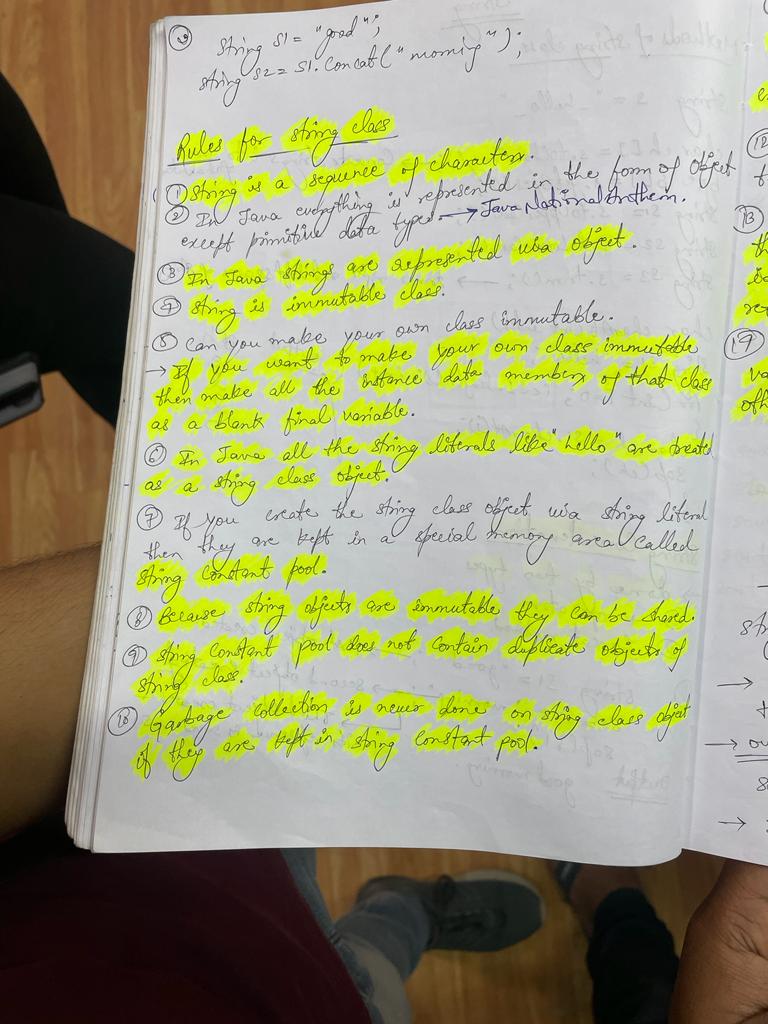 ③ String S1 = "good";
string S2 = S1.Concat("morning");
Rules for string class
① String is a sequence of characters.
② In Java everything is represented in the form of object
except primitive data types → Java National Anthem.
③ In Java strings are represented via object.
④ string is immutable class.
⑤ Can you make your own class immutable.
→ If you want to make your own class immutable
then make all the instance data members of that class
as a blank final variable.
⑥ In Java all the string literals like "hello" are treated
as a string class object.
⑦ If you create the string class object via string literal
then they are kept in a special memory area called
string constant pool.
⑧ Because string objects are immutable they can be shared.
⑨ string constant pool does not contain duplicate objects of
string class.
⑩ Garbage collection is never done on string class object
if they are kept in string constant pool.
⑫
⑬
⑭
→
→
→